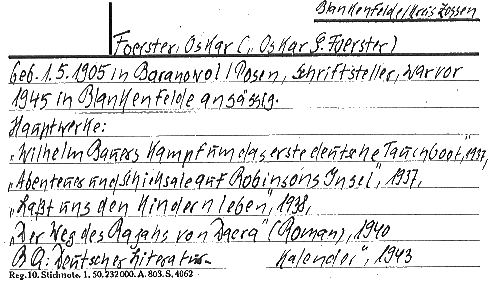 Blankenfelde/Kreis Zossen
Foerster, Oskar (, Oskar G. Foerster)
Geb. 1.5.1905 in Baranowo/Posen, Schriftsteller, war vor
1945 in Blankenfelde ansässig.
Hauptwerke:
„Wilhelm Bauers Kampf um das erste deutsche Tauchboot", 1937,
„Abenteuer und Schicksale auf Robinsons Insel", 1937,
„Laßt uns den Kindern leben", 1938,
„Der Weg des Rajahs von Dacra" (Roman), 1940
BQ: Deutscher Literatur- Kalender", 1943
Reg. 10. Stichnote. 1. 50. 232000. A. 803. S. 4062